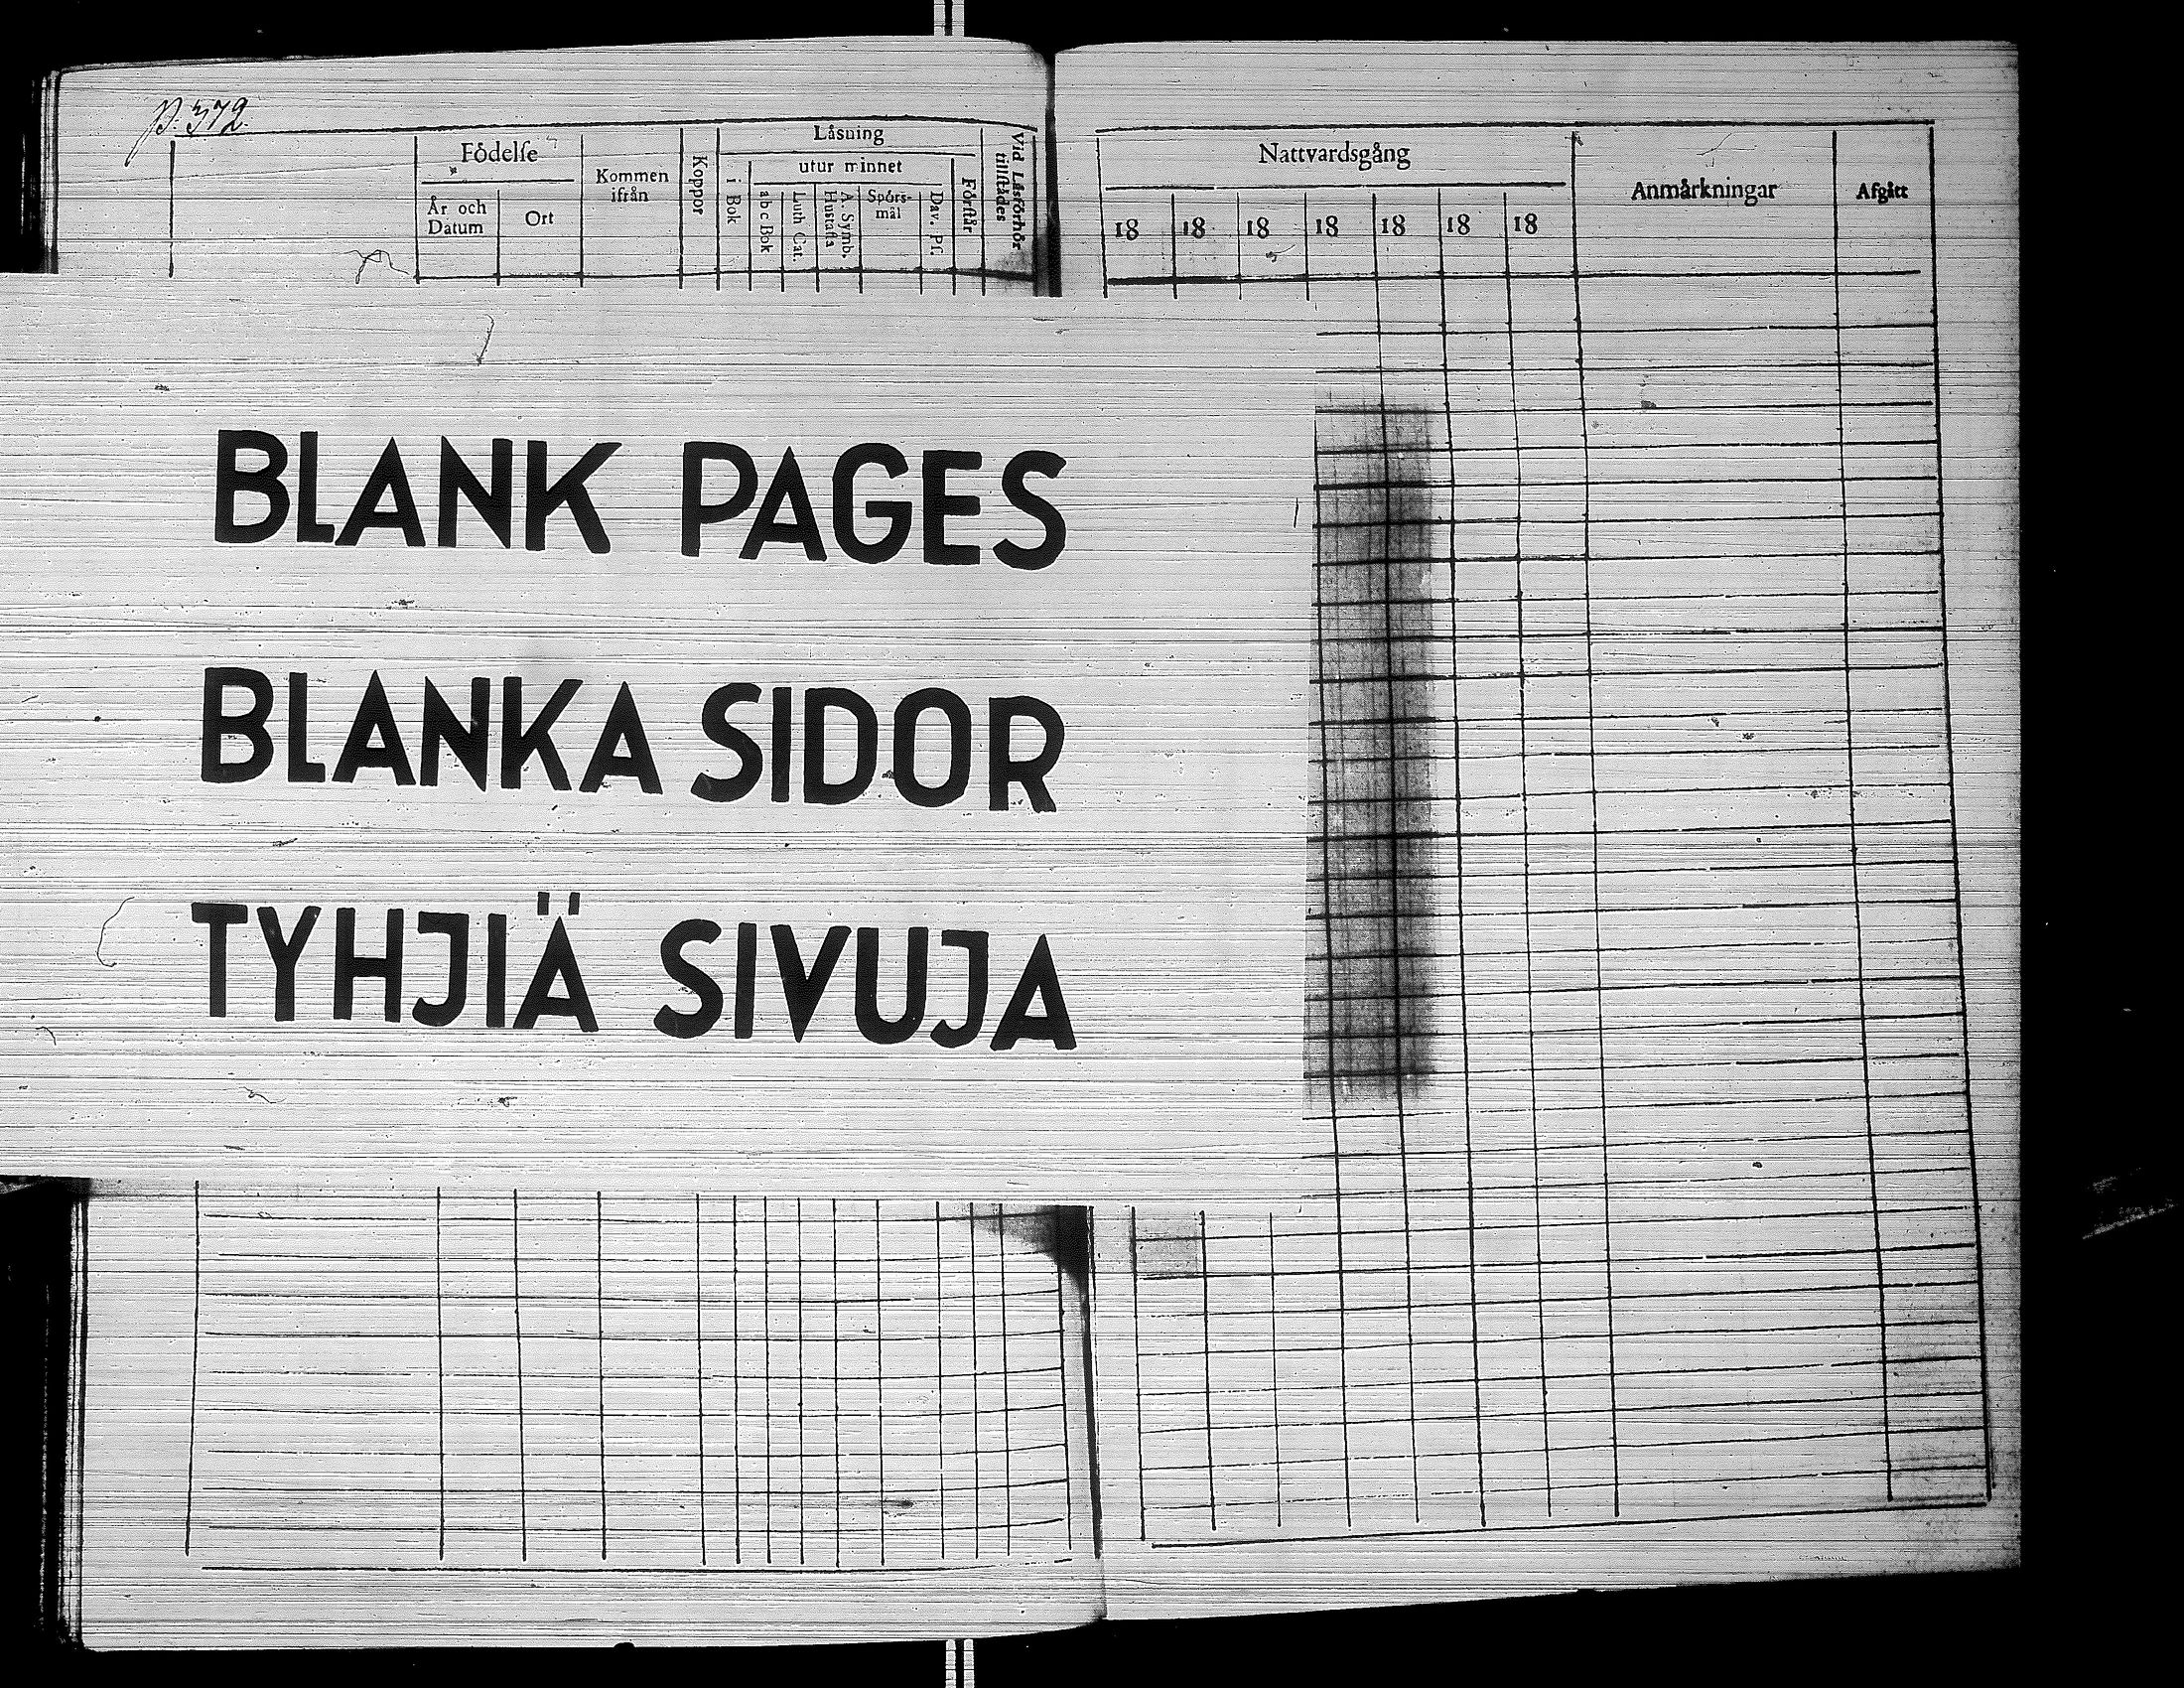 p. 372.
Födelse
År och Datum
Ort
Kommen ifrån
Koppor
Låsning
i Bok
utur minnet
abc Bok
Luth. Cat.
A. Symb. Hustafla
Spörsmål
Dav. Ps.
Förstår
Vid Låsförhör tillstädes
Nattvardsgång
18 18 18 18 18 18 18
Anmårkningar
Afgått
BLANK PAGES
BLANKA SIDOR
TYHJIÄ SIVUJA